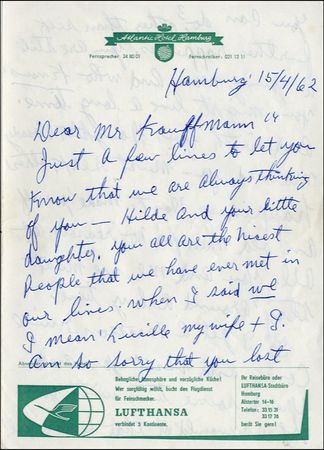 Atlantic Hotel Hamburg
Fernsprecher: 24 80 01
Fernschreiber: 021 12 11
Hamburg 15/4/62
Dear Mr Kauffmann
Just A few lines to let you
Know that we are Always thinking
of you — Hilde And your little
daughter. you All are the Nicest
People that we have ever met in
our lives. when I said we
I mean' Lucille my wife + I.
Am so sorry that you lost
Behagliche Atmosphäre und vorzügliche Küche!
Wer sorgfältig wählt, bucht den Flugdienst
für Feinschmecker.
LUFTHANSA
verbindet 5 Kontinente.
Ihr Reisebüro oder
LUFTHANSA-Stadtbüro
Hamburg
Alstertor 14-16
Telefon: 33 15 31
33 17 76
berät Sie gern!